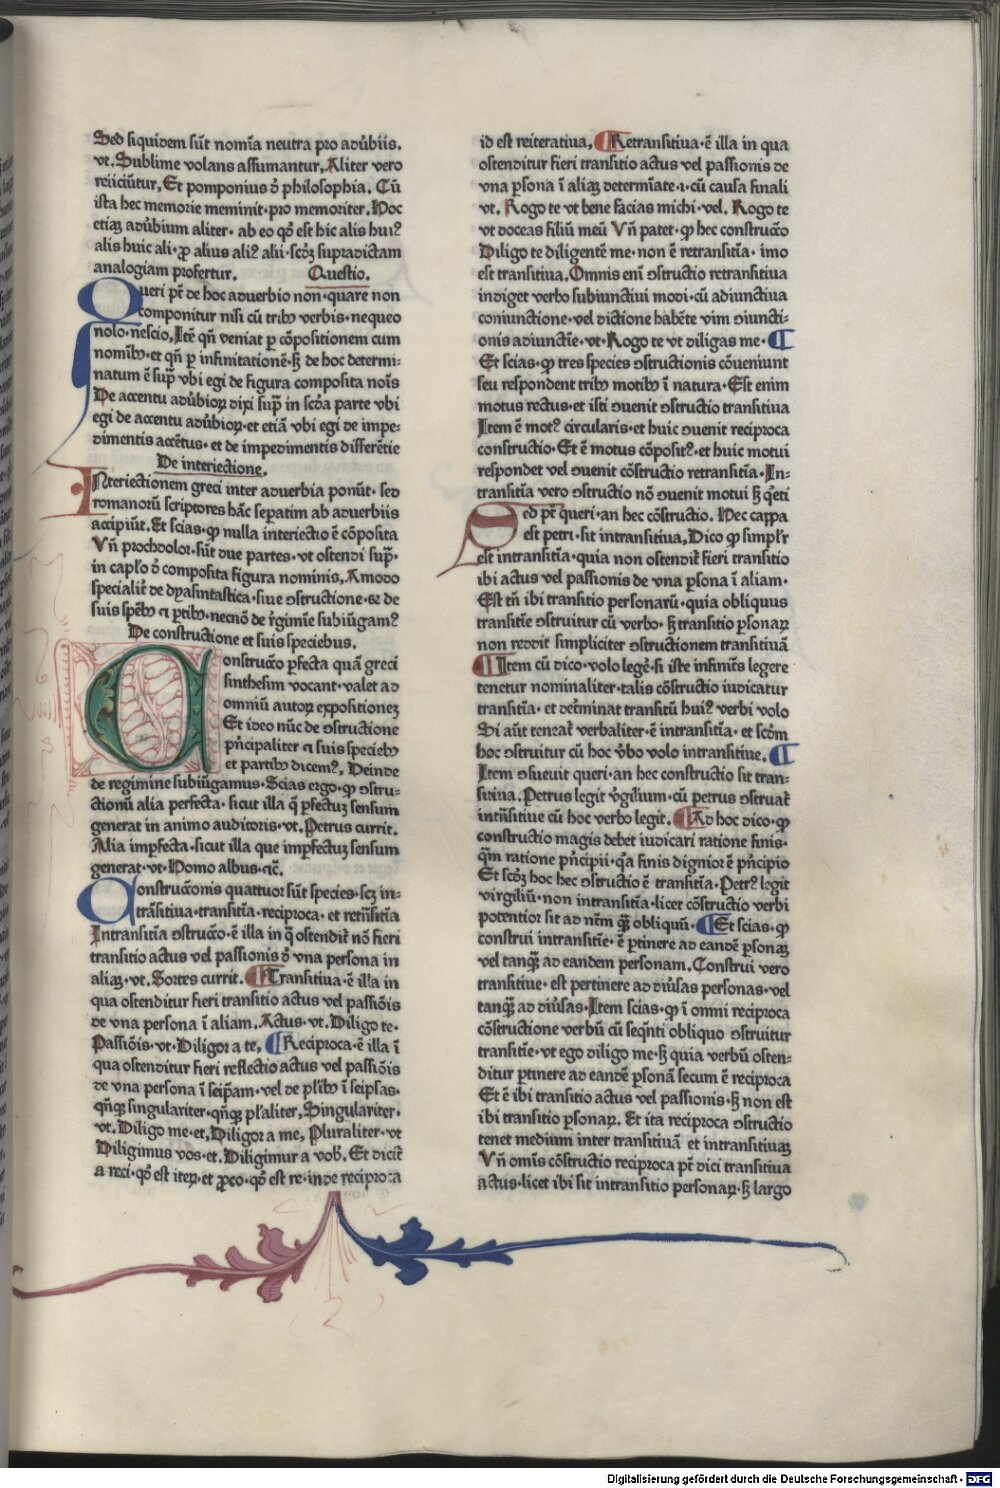 Sed siquidem sūt nomīa neutra pro adūbiis.
vt. Sublime volans assumantur, Aliter vero
reiiciūtur, Et pomponius ō philosophia. Cū
ista hec memorie meminit· pro memoriter. Hoc
etiaꝫ adūbium aliter· ab eo qō est hic alis huiꝰ
alis huic ali· ꝓ alius aliꝰ alii· scōꝫ supradictam
analogiam profertur. Questio.
Queri pt̄ de hoc aduerbio non· quare non
componitur nisi cū tribꝫ verbis· nequeo
nolo· nescio, Itē qn̄ veniat ꝑ cōpositionem cum
nomībꝫ· et qn̄ ꝑ infinitationē· sꝫ de hoc determi-
natum ē sup̄ vbi egi de figura composita noīs
De accentu adūbioꝝ dixi sup̄ in scōa parte vbi
egi de accentu adūbioꝝ· et etiā vbi egi de impe-
dimentis accētus· et de impedimentis differētie
De interiectione.
INteriectionem greci inter aduerbia ponūt· sed
romanorū scriptores hāc sepatim ab aduerbiis
accipiūt. Et scias· ꝙ nulla interiectio ē cōposita
Vn̄ prochdolor· sūt due partes· vt ostendi sup̄·
in cap̄lo ō composita figura nominis, Amodo
specialit̄ de dyasintastica· siue ꝯstructione· & de
suis spēbꝫ et ꝑtibꝫ· necnō de r̄gimīe subiūgamꝰ
De constructione et suis speciebus.
Constructio ꝑfecta quā greci
sinthesim vocant· valet ad
omniū autoꝝ expositionez
Et ideo nūc de ꝯstructione
pn̄cipaliter et suis speciebꝫ
et partibꝫ dicemꝰ, Deinde
de regimine subiūgamus· Scias ergo· ꝙ ꝯstru-
ctionū alia perfecta· sicut illa q̄ ꝑfectuꝫ sensum
generat in animo auditoris· vt. Petrus currit.
Alia imꝑfecta· sicut illa que imꝑfectuꝫ sensum
generat· vt· Homo albus· et̄c̄.
Constructiōnis quattuor sūt species· scꝫ in-
trāsitiua· transitīa· reciproca· et retn̄sitīa
Intransitīa ꝯstructio· ē illa in q̄ ostendit̄ nō fieri
transitio actus vel passionis ō vna persona in
aliaꝫ· vt. Sortes currit. ¶Transitiua· ē illa in
qua ostenditur fieri transitio actus vel passiōis
de vna persona ī aliam. Actus· vt. Diligo te·
Passiōis· vt· Diligor a te, ¶Reciproca· ē illa ī
qua ostenditur fieri reflectio actus vel passiōis
de vna persona ī seip̄am· vel de pl̄ibꝫ ī seipsas·
qn̄qꝫ singulariter· qn̄qꝫ pl̄aliter, Singulariter·
vt. Diligo me· et, Diligor a me, Pluraliter· vt
Diligimus vos· et. Diligimur a vob̄. Et dicit̄
a reci· qō est iteꝝ· et ꝓceo· qō est re· inde reciproca
id est reiteratiua, ¶Retransitiua· ē illa in qua
ostenditur fieri transitio actus vel passionis de
vna ꝑsona ī aliaꝫ determīate· i· cū causa finali
vt. Rogo te vt bene facias michi· vel. Rogo te
vt doceas filiū meū Vn̄ patet· ꝙ hec constructio
Diligo te diligentē me· non ē retransitīa· imo
est transitiua. Omnis enī ꝯstructio retransitiua
indiget verbo subiunctiui modi· cū adiunctiua
coniunctione· vel dictione habēte vim ꝯiuncti-
onis adiunctīe· vt· Rogo te vt diligas me· ¶
Et scias· ꝙ tres species ꝯstructionis cōueniunt
seu respondent tribꝫ motibꝫ ī natura· Est enim
motus rectus· et isti ꝯuenit ꝯstructio transitiua
Item ē motꝰ circularis· et huic ꝯuenit reciproca
constructio· Et ē motus cōpositꝰ· et huic motui
respondet vel ꝯuenit cōstructio retransitīa· In-
transitīa vero ꝯstructio nō ꝯuenit motui sꝫ q̄eti
Sed pt̄ queri· an hec cōstructio. Hec cappa
est petri· sit intransitiua, Dico ꝙ simpl̄r
est intransitīa· quia non ostendit̄ fieri transitio
ibi actus vel passionis de vna ꝑsona ī aliam·
Est tn̄ ibi transitio personarū· quia obliquus
transitīe ꝯstruitur cū verbo· sꝫ transitio ꝑsonaꝝ
non reddit simpliciter ꝯstructionem transitiuā
¶Item cū dico· volo legē· si iste infinitꝰs legere
tenetur nominaliter· talis cōstructio iudicatur
transitīa· et det̄minat transitū huiꝰ verbi volo
Si aūt teneat̄ verbaliter· ē intransitīa· et scōm
hoc ꝯstruitur cū hoc v̄bo volo intransitiue. ¶
Item ꝯsueuit queri· an hec constructio sit tran-
sitiua. Petrus legit v̄gilium· cū petrus ꝯstruat̄
intn̄sitiue cū hoc verbo legit. ¶Ad hoc dico· ꝙ
constructio magis debet iudicari ratione finis·
q̄m ratione pn̄cipii· q̄a finis dignior ē pn̄cipio
Et scōꝫ hoc hec ꝯstructio ē transitīa· Petrꝰ legit
virgiliū· non intransitīa· licet cōstructio verbi
potentior sit ad nt̄m qꝫ obliquū· ¶Et scias· ꝙ
construi intransitīe· ē ꝑtinere ad eandē ꝑsonaꝫ
vel tanqꝫ ad eandem personam. Construi vero
transitiue· est pertinere ad diūsas personas· vel
tanqꝫ ad diūsas· Item scias· ꝙ ī omni reciproca
cōstructione verbū cū seqn̄ti obliquo ꝯstruitur
transitīe· vt ego diligo me· sꝫ quia verbū osten-
ditur ꝑtinere ad eandē ꝑsonā secum ē reciproca
Et ē ibi transitio actus vel passionis· sꝫ non est
ibi transitio ꝑsonaꝝ. Et ita reciproca ꝯstructio
tenet medium inter transitiuā et intransitiuaꝫ
Vn̄ omīs cōstructio reciproca pt̄ dici transitiua
actus· licet ibi sit intransitio personaꝝ· sꝫ largo
Digitalisierung gefördert durch die Deutsche Forschungsgemeinschaft - DFG